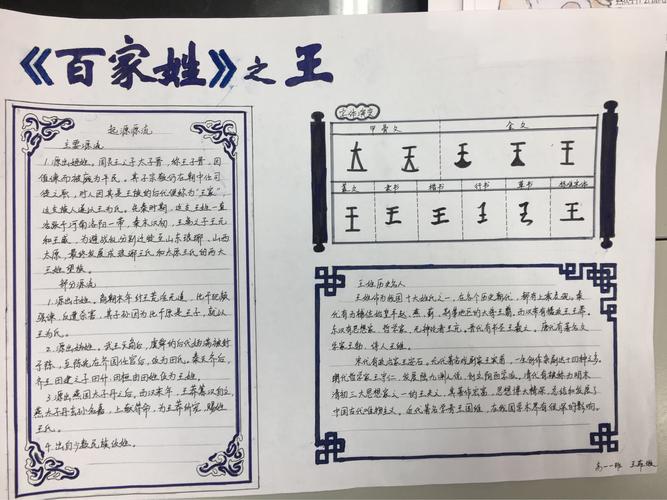 《百家姓》之王
起源源流
主要源流
1.源出姬姓。周灵王之子太子晋,称王子晋,因
值谏而被废为平民。其子宗敬仍在朝中任司
徒之职,时人因其是王族的后代便称为"王家",
这支族人遂以王为氏。先秦时期,这支王姓一直
居住
河南洛阳一带,秦末汉初,王离之子王元
和王威,为避战乱分别迁徙至山东琅琊、山西
太原,最终发展成琅琊王氏和太原王氏的两大
王姓望族。
部分源流
1.源出子姓。商朝末年纣王荒淫无道,比干犯颜
强谏,反遭杀害,其子孙因为比干原是王子,就以
王为氏。
2.源出妫姓。武王灭商后,虞舜的后代妫满被封
于陈,至陈完在齐国任官后,改为田氏。秦灭齐后,
齐王田建之子田升、田桓由田姓改为王姓。
3.源出燕国太子丹之后。西汉末年,王莽篡汉自立,
燕太子丹玄孙名嘉,上献符命,为王莽所宠,赐姓
王氏。
4.出自少数民族改姓。
字体演变
甲骨文 金文
篆文 隶书 楷书 行书 草书 标准宋体
王 王 王 王 王 王
王姓历史名人
王姓作为我国十大姓氏之一,在各个历史朝代,都有上乘表现。秦
代有为横
燕、蓟、荆等地区的大将王翦。而汉市有
王王莽。
东汉有思想家、哲学家、无神论者王充。晋代有书圣王羲之。唐代有著名文
学家王勃,诗人王维。
宋代有政治家王安石。元代著名戏剧家王实甫,一生创作杂剧达十四种之多。
明代哲学家王守仁,发展陆九渊心说,创立阳明学派。清代有被称为明末
清初三大思想家之一的王夫之,其著作宏富,思想博大精深,总结和发展了
中国古代唯物主义。近代著名学者王国维,在我国学术界有很深的影响。
高一一班 王